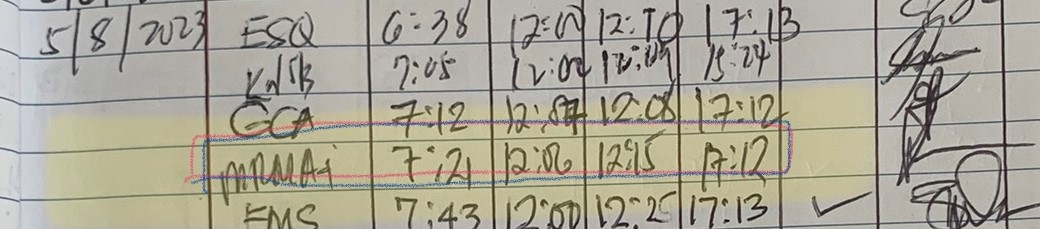 5/8/2023 ESQ 6:38 12:00 12:10 17:13
7:05 12:02 12:09 15:24
GCA 7:12 12:07 12:08 17:12
7:21 12:06 12:15 17:12
EMS 7:43 12:00 12:25 17:13 ✓